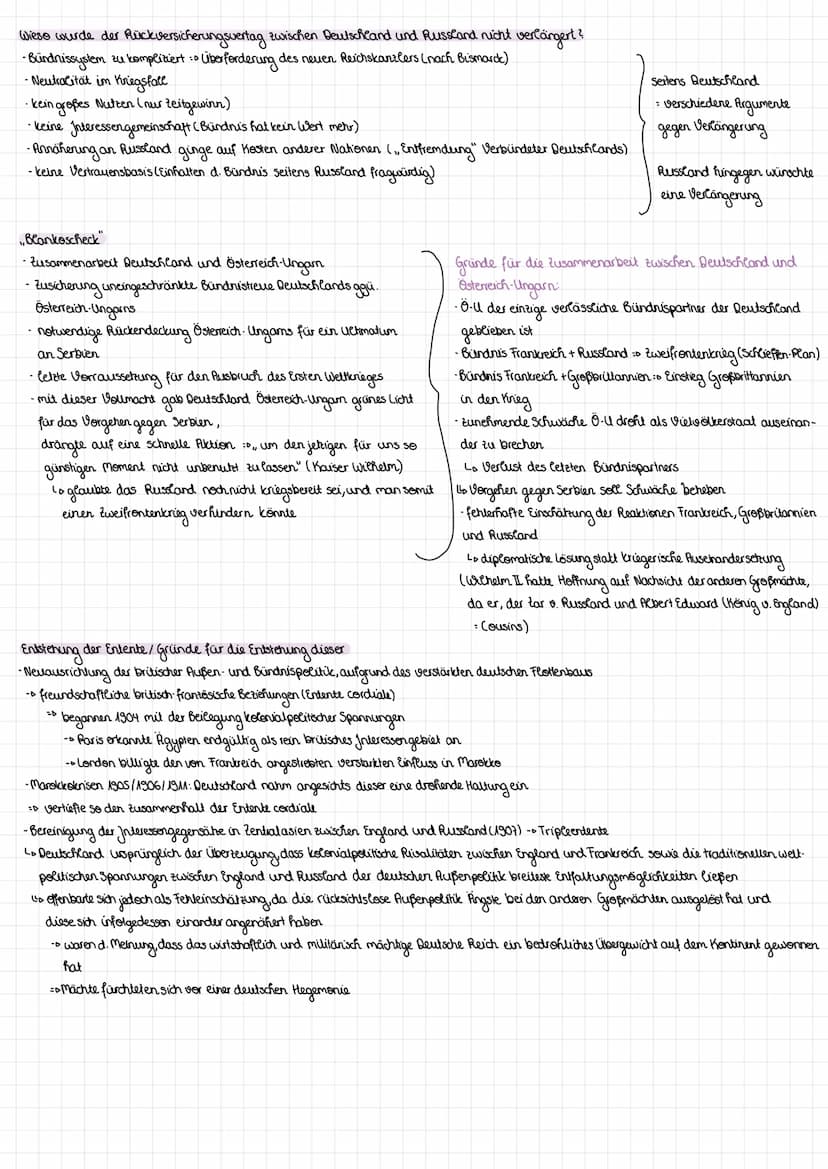 Wieso wurde der Rückversicherungsvertag zwischen Deutschland und Russland nicht verlängert?
- Bündnissystem zu kompliziert => Überforderung des neuen Reichskanzlers (nach Bismarck)
- Neutralität im Kriegsfall
- kein großes Nutzen (nur Zeitgewinn)
- keine Interessengemeinschaft (Bündnis hat kein Wert mehr)
- Annäherung an Russland ginge auf Kosten anderer Nationen („Entfremdung" Verbündeter Deutschlands)
- keine Vertrauensbasis (Einhalten d. Bündnis seitens Russland fragwürdig)
seitens Deutschland
: verschiedene Argumente
gegen Verlängerung
Russland hingegen wünschte
eine Verlängerung
„Blankoscheck"
- Zusammenarbeit Deutschland und Österreich-Ungarn
- Zusicherung uneingeschränkte Bündnistreue Deutschlands ggü.
Österreich-Ungarns
- notwendige Rückendeckung Österreich-Ungarns für ein Ultimatum
an Serbien
- letzte Vorraussetzung für den Ausbruch des Ersten Weltkrieges
- mit dieser Vollmacht gab Deutschland Österreich-Ungarn grünes Licht
für das Vorgehen gegen Serbien,
drängte auf eine schnelle Aktion => „um den jetzigen für uns so
günstigen Moment nicht unbenutzt zu lassen" (Kaiser Wilhelm)
↳ glaubte das Russland noch nicht kriegsbereit sei, und man somit
einen Zweifrontenkrieg verhindern könnte
Gründe für die Zusammenarbeit zwischen Deutschland und
Österreich-Ungarn:
- Ö-U der einzige verlässliche Bündnispartner der Deutschland
geblieben ist
- Bündnis Frankreich + Russland => Zweifrontenkrieg (Schlieffen-Plan)
- Bündnis Frankreich + Großbrittannien => Einstieg Großbrittannien
in den Krieg
- zunehmende Schwäche Ö-U droht als Vielvölkerstaat auseinan-
der zu brechen
↳ Verlust des letzten Bündnispartners
↳ Vorgehen gegen Serbien soll Schwäche beheben
- fehlerhafte Einschätzung der Reaktionen Frankreich, Großbritannien
und Russland
↳ diplomatische Lösung statt kriegerische Auseinandersetzung
(Wilhelm II. hatte Hoffnung auf Nachsicht der anderen Großmächte,
da er, der Zar v. Russland und Albert Edward (König v. England)
: Cousins)
Entstehung der Entente / Gründe für die Entstehung dieser
- Neuausrichtung der britischer Außen- und Bündnispolitik, aufgrund des verstärkten deutschen Flottenbaus
-> freundschaftliche britisch-französische Beziehungen (Entente cordiale)
=> begannen 1904 mit der Beilegung kolonialpolitischer Spannungen
-> Paris erkannte Ägypten endgültig als rein britisches Interessengebiet an
-> London billigte den von Frankreich angestrebten verstärkten Einfluss in Marokko
- Marokkokrisen 1905/1906/1911: Deutschland nahm angesichts dieser eine drohende Haltung ein
=> vertiefte so den Zusammenhalt der Entente cordiale
- Bereinigung der Interessengegensätze in Zentralasien zwischen England und Russland (1907) -> Tripleentente
↳ Deutschland ursprünglich der Überzeugung, dass kolonialpolitische Rivalitäten zwischen England und Frankreich sowie die traditionellen welt-
politischen Spannungen zwischen England und Russland der deutschen Außenpolitik breiteste Entfaltungsmöglichkeiten ließen
↳ offenbarte sich jedoch als Fehleinschätzung, da die rücksichtslose Außenpolitik Ängste bei den anderen Großmächten ausgelöst hat und
diese sich infolgedessen einander angenähert haben
-> waren d. Meinung, dass das wirtschaftlich und militärisch mächtige Deutsche Reich ein bedrohliches Übergewicht auf dem Kontinent gewonnen
hat
=> Mächte fürchteten sich vor einer deutschen Hegemonie